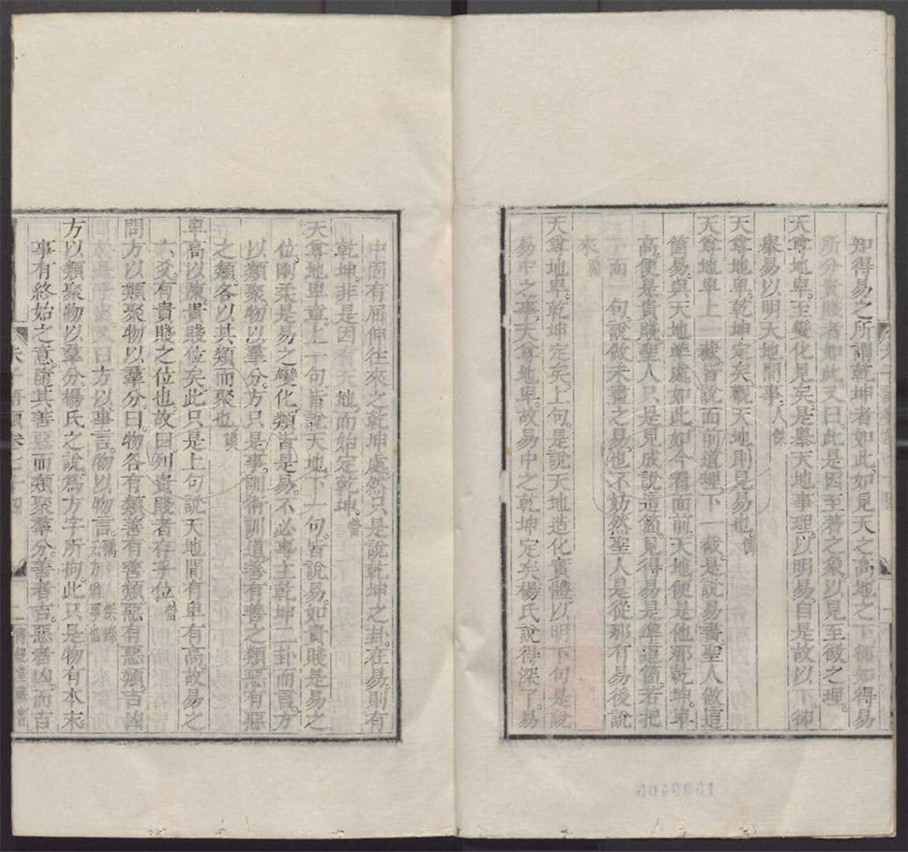 知得易之所謂乾坤者如此如見天之高地之下卻如得易
所分貴賤者如此又曰此是因至著之象以見至微之理
天尊地卑至變化見矣是舉天地事理以明易自是故以下卻
舉易以明天地間事人傑
天尊地卑乾坤定矣觀天地則見易也僩
天尊地卑上一截皆說面前道理下一截是說易書聖人做這
箇易與天地準處如此如今看面前天地便是他那乾坤卑
高便是貴賤聖人只是見成說這箇見得易是準這箇若把
下面一句說做未畫之易也不妨然聖人是從那有易後說
來
天尊地卑乾坤定矣上句是說天地造化實體以明下句是說
易中之事天尊地卑故易中之乾坤定矣楊氏說得深了易
中固有屈伸往來之乾坤處然只是說乾坤之卦在易則有
乾坤非是因有天地而始定乾坤
天尊地卑章上一句皆說天地下一句皆說易如貴賤是易之
位剛柔是易之變化類皆是易不必專主乾坤二卦而言方
以類聚物以羣分方只是事訓術訓道善有善之類惡有惡
之類各以其類而聚也
卑高以陳貴賤位矣此只是上句說天地間有卑有高故易之
六爻有貴賤之位也故曰列貴賤者存乎位
問方以類聚物以羣分曰物各有類善有善類惡有惡類吉凶
又曰方以事言物以物言
方以類聚物以羣分楊氏之說爲方字所拘此只是物有本末
事有終始之意隨其善惡而類聚羣分善者吉惡者凶而吉
朱子語類卷七十四